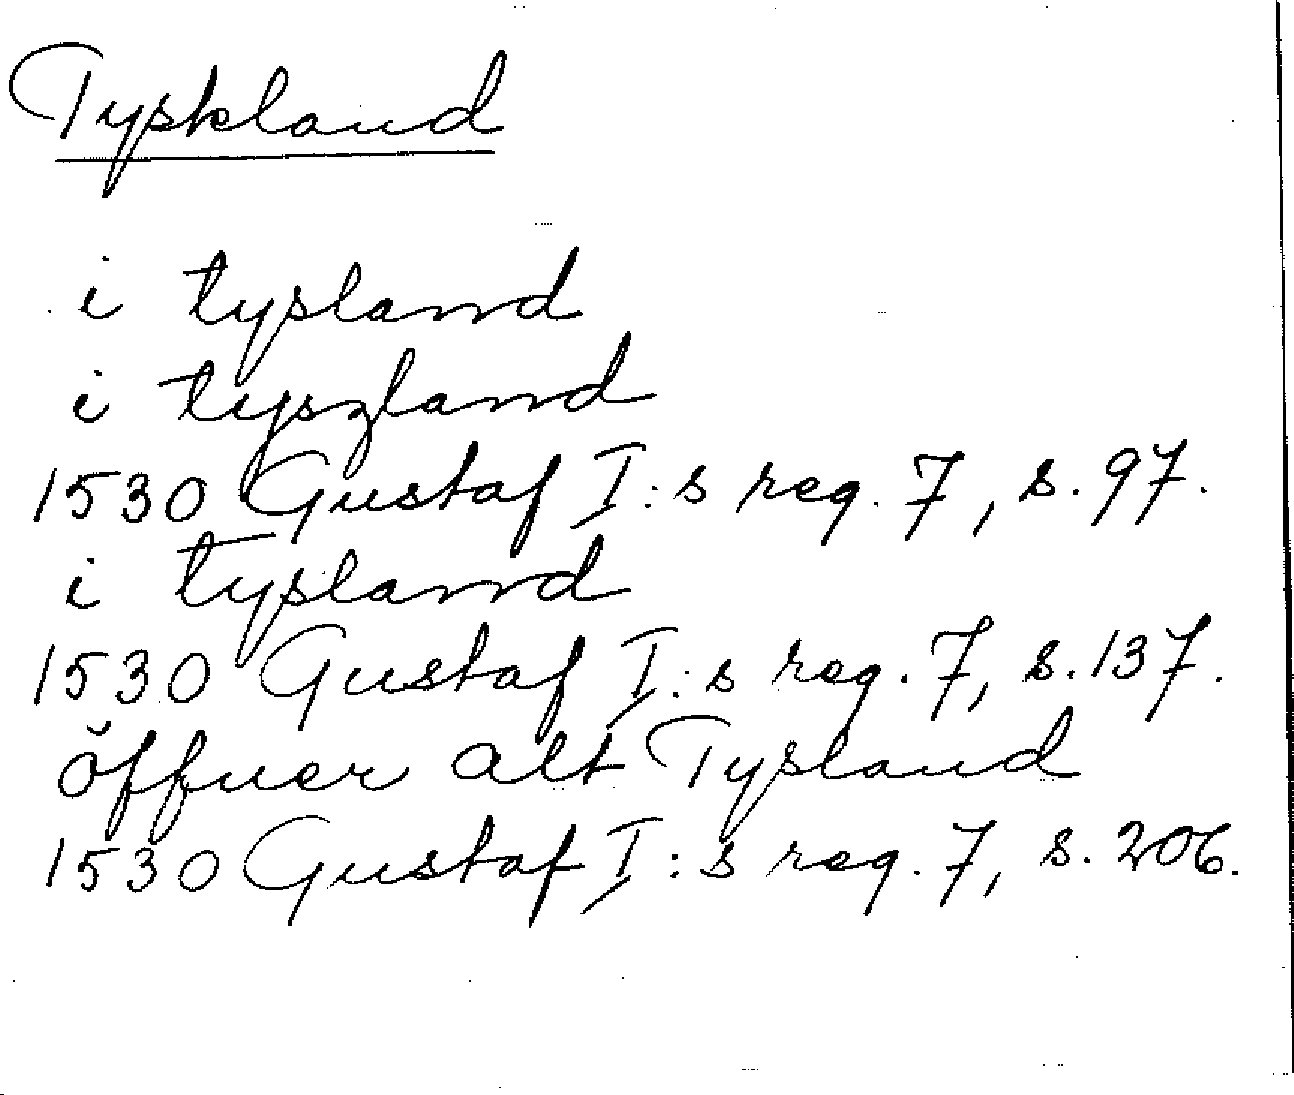 Tyskland
i tysland
i tyszland
1530 Gustaf I:s reg. 7, s. 97.
i tysland
1530 Gustaf I:s reg. 7, s. 137.
öffuer alt Tysland
1530 Gustaf I:s reg. 7, s. 206.